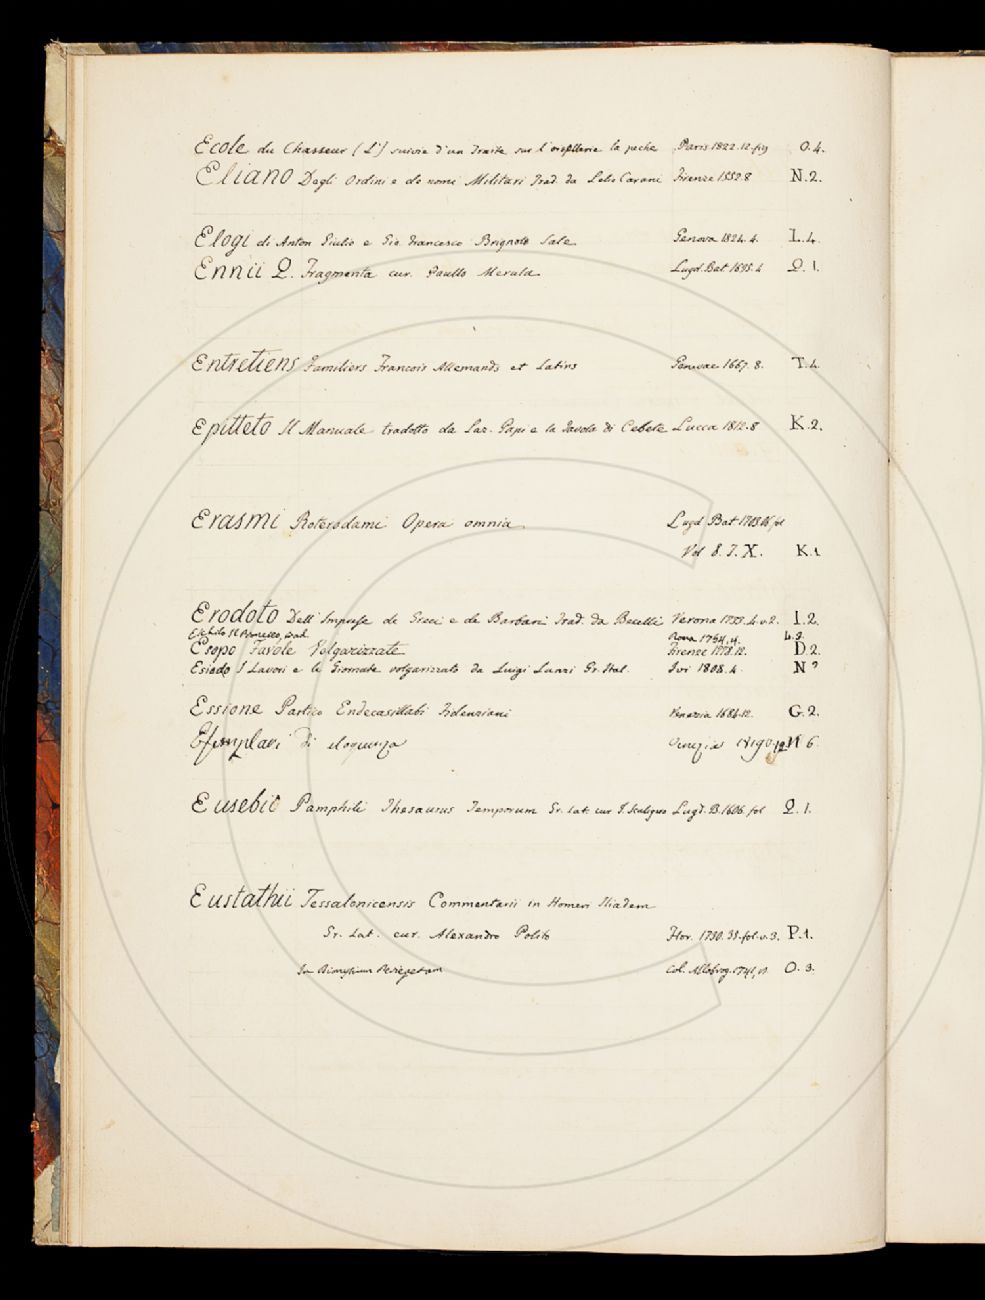 Ecole du Chasseur (L') suivie d'un Traite sur l'oisellerie la peche Paris 1822. 12. fig O. 4.
Eliano Degli Ordini e de nomi Militari Trad. da Lelio Carani Firenze 1552. 8 N. 2.
Elogi di Anton Giulio e Gio. Francesco Brignole Sale Genova 1824. 4. L. 4.
Ennii Q. Fragmenta cur. Paullo Merula Lugd. Bat 1595. 4 Q. 1.
Entretiens Familiers Francois Allemands et Latins Genevae 1667. 8. T. 4.
Epitteto Il Manuale tradotto da Laz. Papi e la Tavola di Cebete Lucca 1812. 8 K. 2.
Erasmi Roterodami Opera omnia Lugd Bat 1703. fol
Vol 8. T. X. K. 1.
Erodoto Dell' Imprese de Greci e de Barbari Trad. da Becelli Verona 1733. 4. v. 2. I. 2.
Eschilo Il Prometeo, trad. Roma 1754. 4. L. 3.
Esopo Favole Volgarizzate Firenze 1778. 12. D. 2.
Esiodo I Lavori e le Giornate volgarizzato da Luigi Lanzi Gr. Ital. Ivi 1808. 4. N
Essione Partico Endecasillabi Fidenziani Venezia 1684. 12. G. 2.
Esemplari di eloquenza Venezia 6
Eusebio Pamphili Thesaurus Temporum Gr. Lat. cur J. Scaligero Lugd. B. 1606. fol Q. 1.
Eustathii Tessalonicensis Commentarii in Homeri Iliadem
Gr. Lat. cur. Alexandro Polito Flor. 1730. 35. fol. v. 3. P. 1.
In Dionysium Periegetam Col. Allobrog. 1741, O. 3.